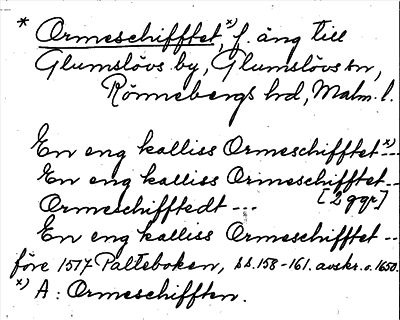 * Ormeschifftet, x) f. äng till
Glumslövs by, Glumslövs sn,
Rönnebergs hd, Malm. l.
En eng kalliss Ormeschifftet x) ---
En eng kalliss Ormeschifftet --
Ormeschifftedt --- [2 ggr]
En eng kalliss Ormeschifftet --
före 1517 Palteboken, ss. 158-161. avskr. o. 1650.
x) A: Ormeschifften.